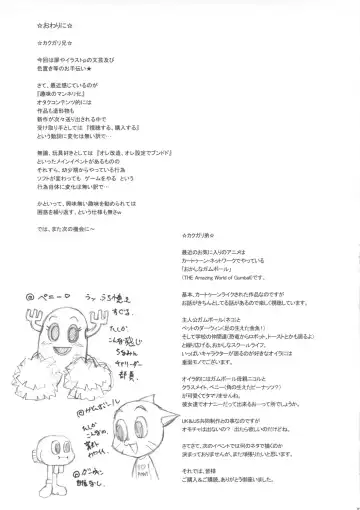 ☆おわりに☆
☆カクガリ兄☆
今回は扉やイラストpの文芸及び
色置き等のお手伝い★
さて、最近感じているのが
『趣味のマンネリ化』
オタクコンテンツ的には
作品も造形物も
新作が次々送り出される中で
受け取り手としては『視聴する、購入する』
という動詞に変化は無い訳で…
無論、玩具好きとしては『オレ改造、オレ設定でブンドド』
といったメインイベントがあるものの
それすら、幼少期からやっている行為
ソフトが変わっても ゲームをやる という
行為自体に変化は無い訳で…
かといって、興味無い趣味を勧められては
困惑を繰り返す、という仕様も無さw
では、また次の機会に～
☆カクガリ弟☆
最近のお気に入りのアニメは
カートゥーン・ネットワークでやっている
「おかしなガムボール」
(THE Amazing World of Gumball)です。
基本、カートゥーンライクされた作品なのですが
お話がきちんとしてる話があるので楽しく視聴しています。
主人公ガムボール(ネコ)と
ペットのダーウィン(足の生えた金魚！)
そして学校の仲間達(恐竜からロボット、トーストとかまで居るよ)
と繰り広げる、おかしなスクールライフ。
いっぱいキャラクターが居るのが好きなオイラには
垂涎モノでございます。
オイラ的にはガムボール母親ニコルと
クラスメイト、ペニー(角の生えたピーナッツ？)
が可愛くてタマりませんね。
彼女達でオナニーだって出来るおーって所でしょうか。
UK&US共同制作との事なのですが
オモチャは出ないの？ 出たら欲しいのだけどね。
さてさて、次のイベントでは何のネタで描くのか
決まっておりませんが、また頑張りたいと思います。
それでは、皆様
ご購入＆ご読破、ありがとう御座いました。
@ペニー♡
こんな感じ
チアリーダー
部長
@がむぼーる